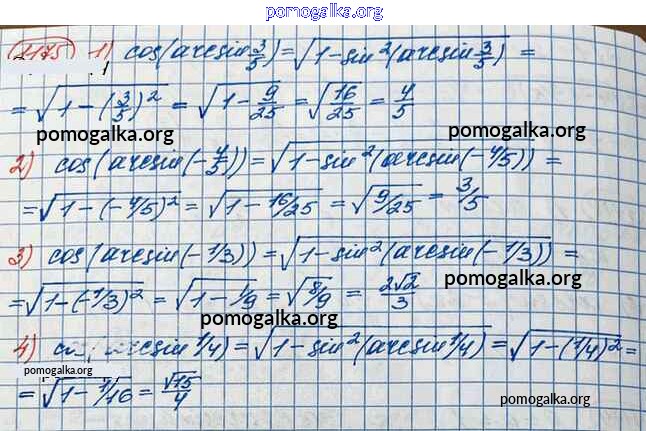 pomogalka.org
1175 1) cos(arcsin 3/5) = √(1-sin²(arcsin 3/5)) =
= √(1-(3/5)²) = √(1-9/25) = √(16/25) = 4/5
pomogalka.org pomogalka.org
2) cos(arcsin(-4/5)) = √(1-sin²(arcsin(-4/5))) =
= √(1-(-4/5)²) = √(1-16/25) = √(9/25) = 3/5
pomogalka.org
3) cos(arcsin(-1/3)) = √(1-sin²(arcsin(-1/3))) =
pomogalka.org
= √(1-(-1/3)²) = √(1-1/9) = √(8/9) = 2√2/3
pomogalka.org
4) (arcsin 1/4) = √(1-sin²(arcsin 1/4)) = √(1-(1/4)²) =
pomogalka.org
= √(1-1/16) = √15/4
pomogalka.org